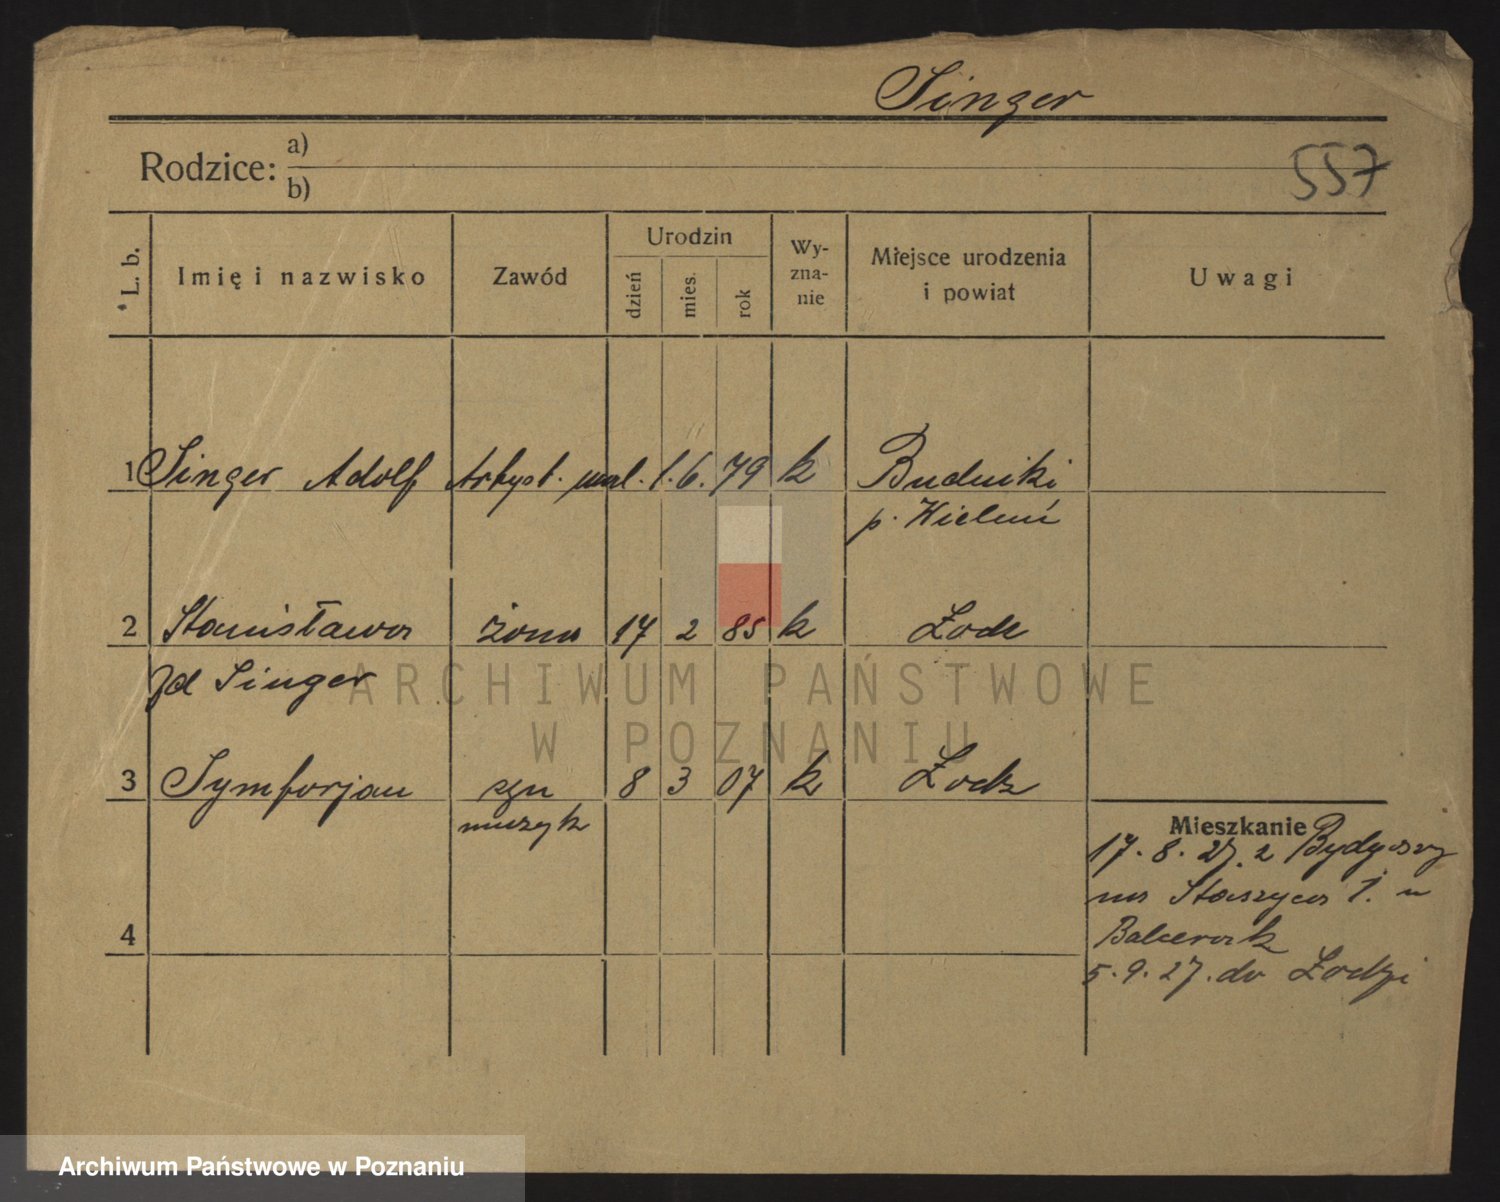 Singer
Rodzice: a)
b)
557
L. b.
Imię i nazwisko
Zawód
Urodzin
dzień
mies.
rok
Wy-
zna-
nie
Miejsce urodzenia
i powiat
Uwagi
1 Singer Adolf Artyst. mal. 1. 6. 79 k Budniki
p. Wieluń
2 Stanisława żona 17 2 85 k Łodz
zd Singer
3 Symforjan syn 8 3 07 k Łodz
muzyk
Mieszkanie
17. 8. 27. z Bydgoszy
na Staszyca 1. u
Balcerok
4
5. 9. 27. do Łodzi
ARCHIWUM PAŃSTWOWE
W POZNANIU
Archiwum Państwowe w Poznaniu